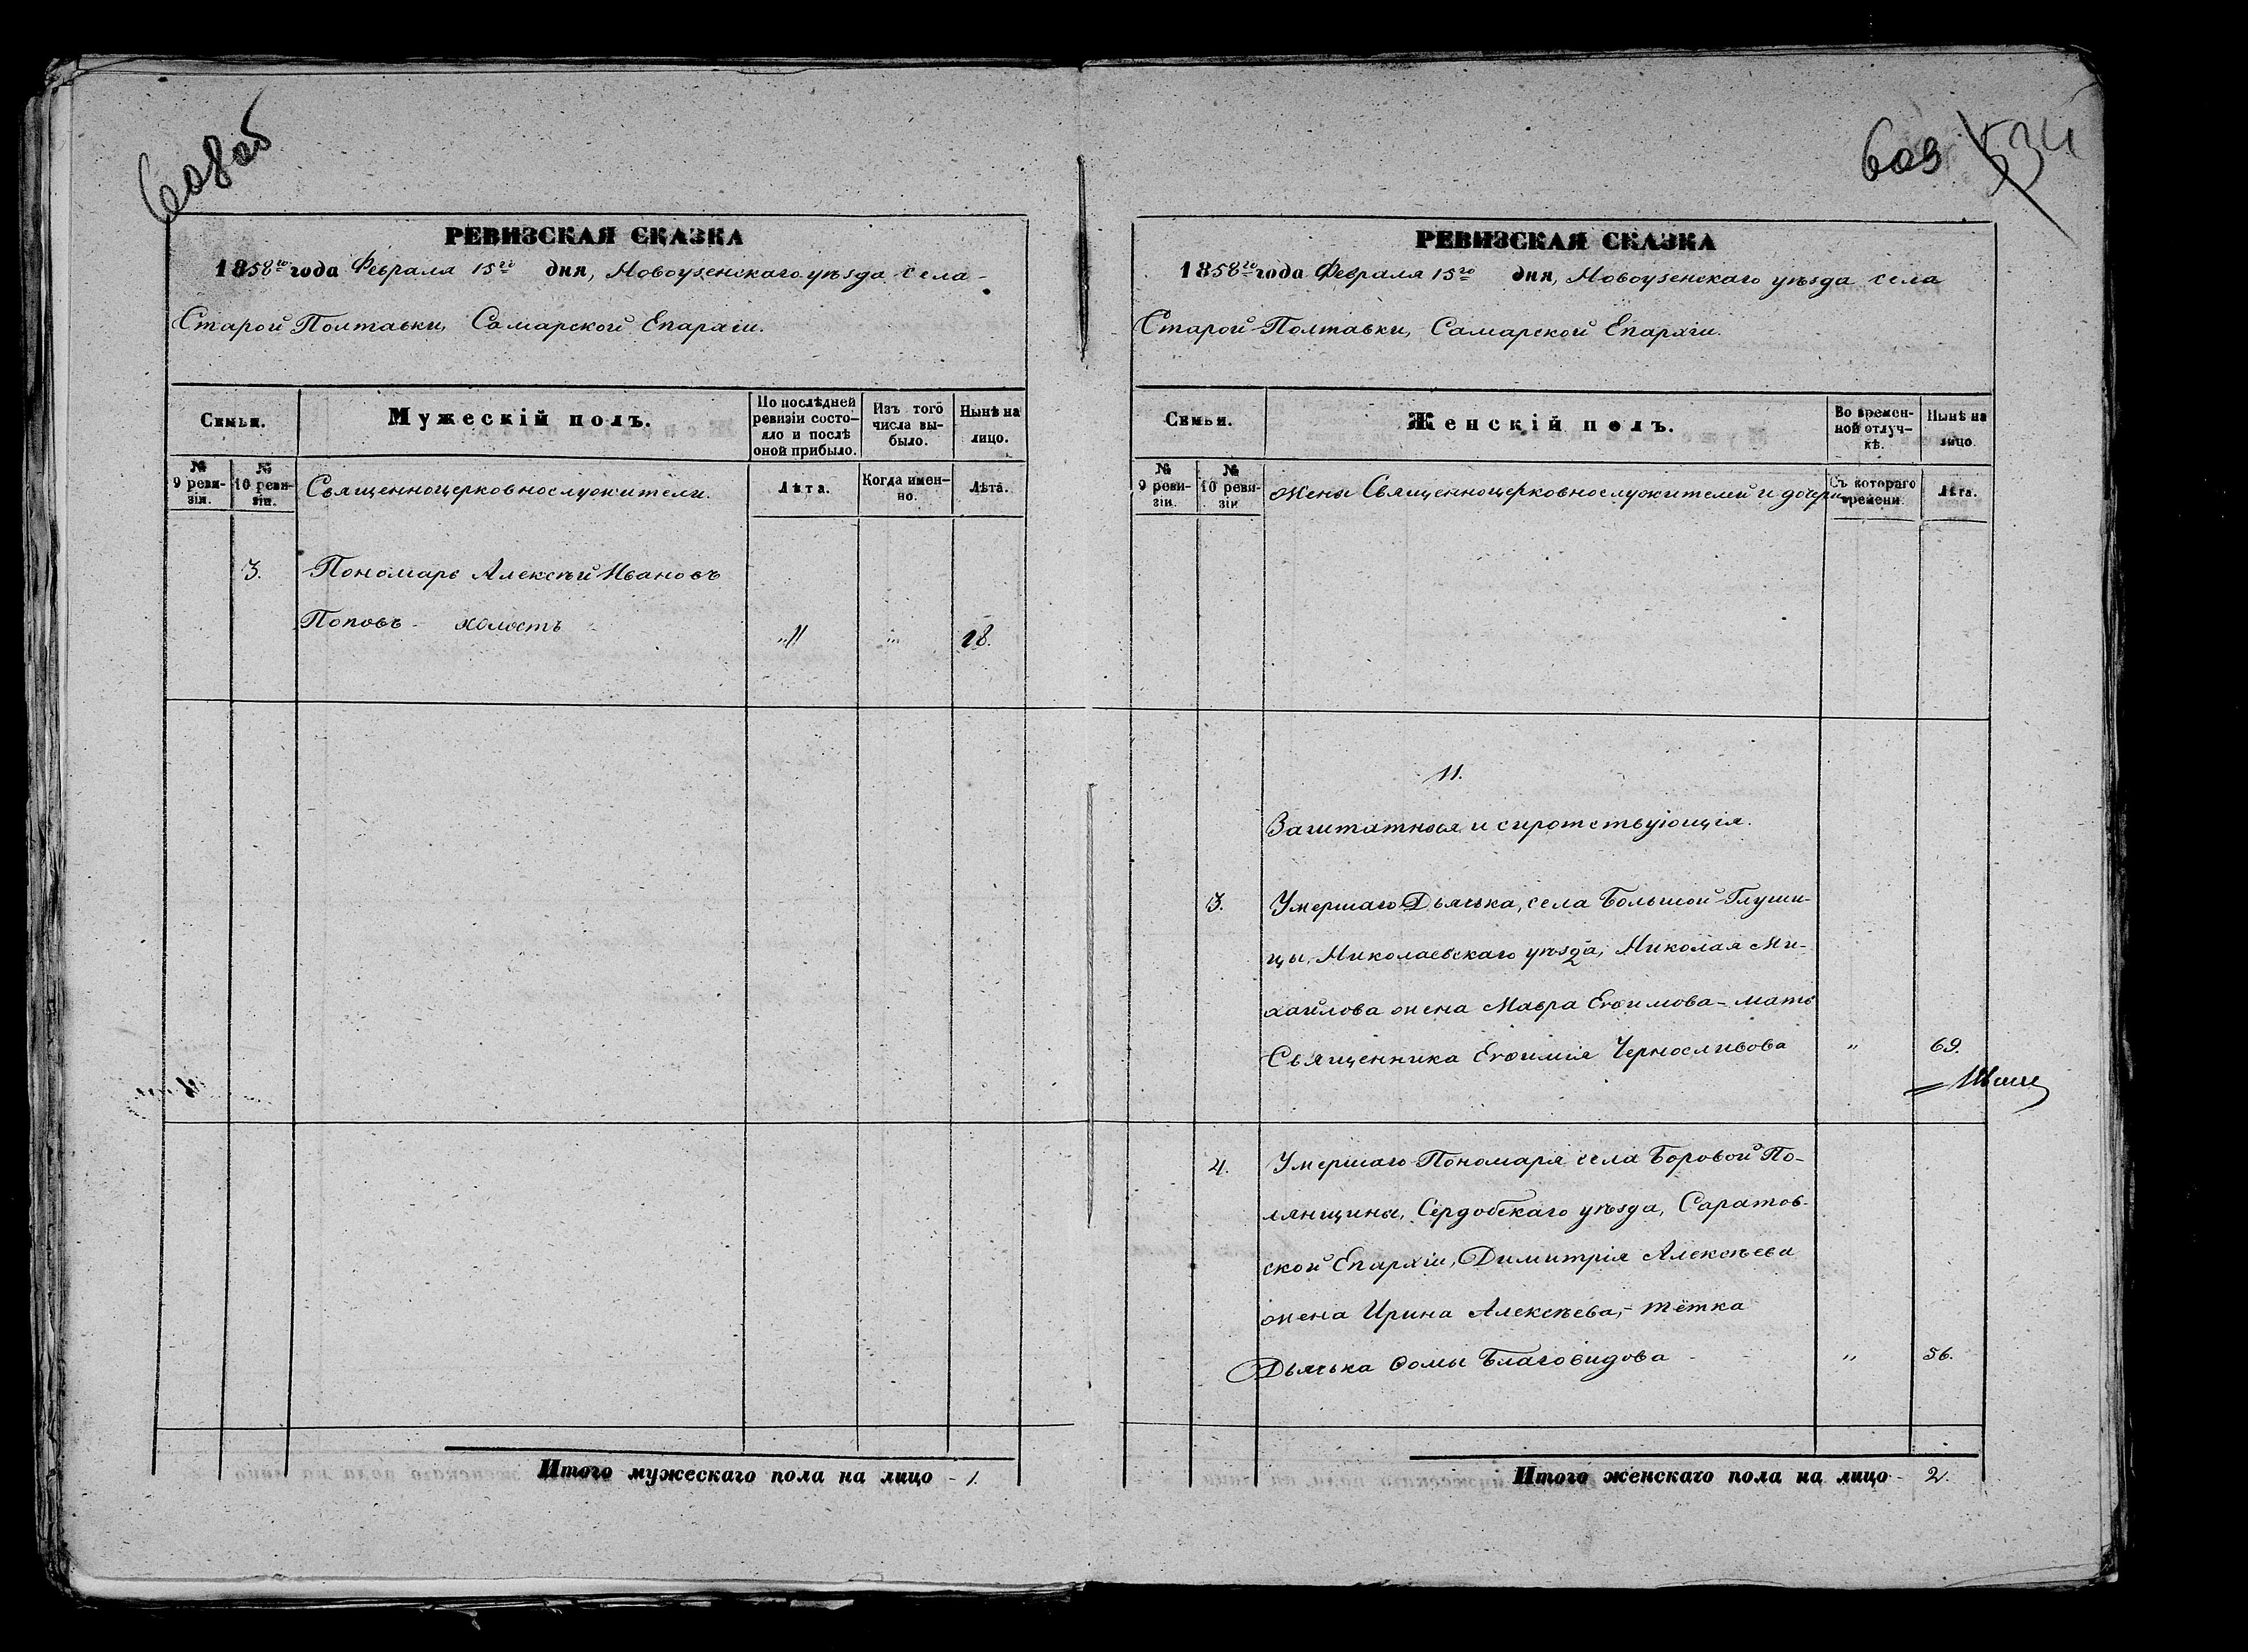 608об
РЕВИЗСКАЯ СКАЗКА
1858го года Февраля 15го дня, Новоузенскаго уѣзда села
Старой Полтавки, Самарской Епархіи.
Семьи.
Мужескій полъ.
По послѣдней ревизіи состояло и послѣ оной прибыло.
Изъ того числа выбыло.
Нынѣ на лицо.
№ 9 ревизіи.
№ 10 ревизіи.
Священноцерковнослужители.
Лѣта.
Когда именно.
Лѣта.
3. Пономарь Алексѣй Ивановъ
Поповъ - холостъ - „ „ 18.
Итого мужескаго пола на лицо - 1.
609 534
РЕВИЗСКАЯ СКАЗКА
1858го года Февраля 15го дня, Новоузенскаго уѣзда села
Старой Полтавки, Самарской Епархіи.
Семьи.
Женскій полъ.
Во временной отлучкѣ.
Нынѣ на лицо.
№ 9 ревизіи.
№ 10 ревизіи.
Жены Священноцерковнослужителей и дочери.
Съ котораго времени.
Лѣта.
11.
Заштатныя и сиротствующія.
3. Умершаго Дьячька, села Большой Глуши-
цы, Николаевскаго уѣзда, Николая Ми-
хайлова жена Мавра Еѳимова - мать
Священника Еѳимія Черносливова „ 69.
4. Умершаго Пономаря села Боровой По-
лянщины, Сердобскаго уѣзда, Саратов-
ской Епархіи, Димитрія Алексѣева
жена Ирина Алексѣева, - тётка
Дьячька Ѳомы Благовидова - „ 56.
Итого женскаго пола на лицо - 2.